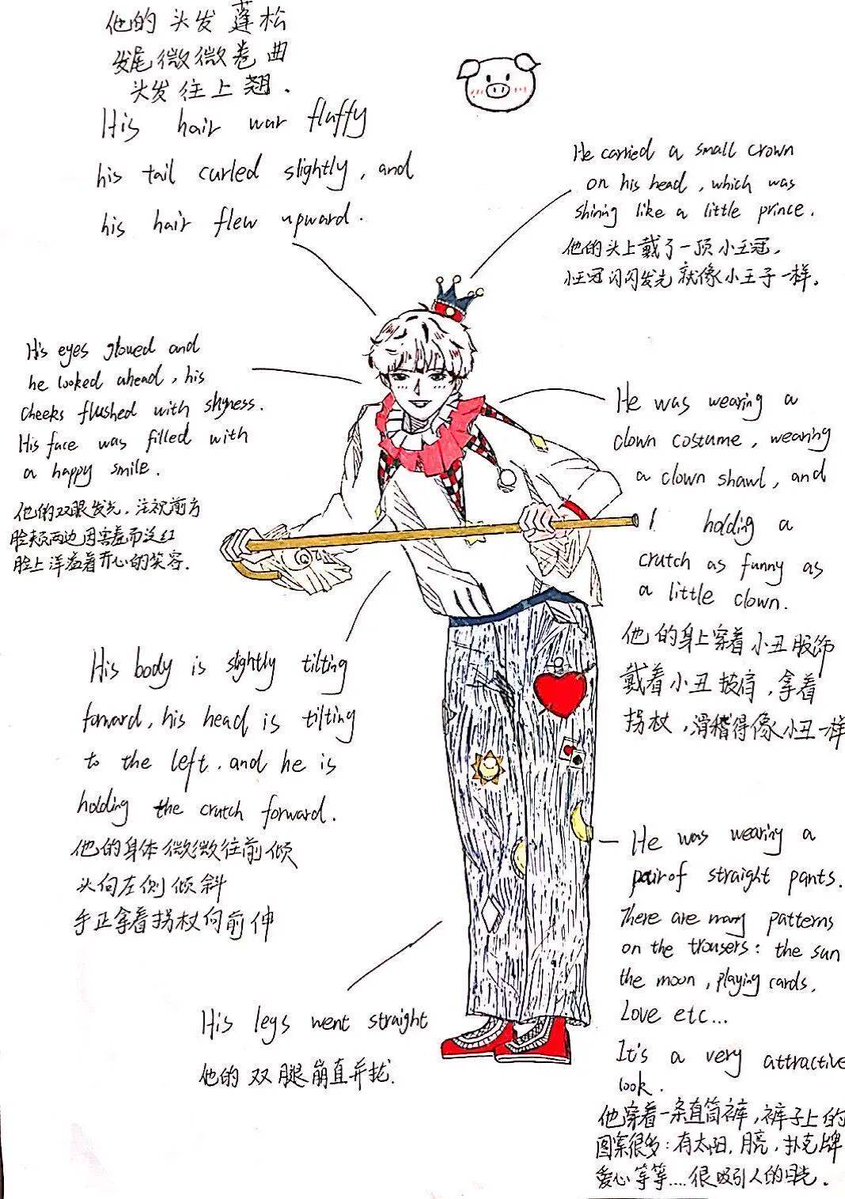 他的头发蓬松
发尾微微卷曲
头发往上翘.
His hair war fluffy
his tail curled slightly, and
his hair flew upward.
He carried a small crown
on his head, which was
shining like a little prince.
他的头上戴了一顶小王冠,
小王冠闪闪发光就像小王子一样。
His eyes glowed and
he looked ahead, his
cheeks flushed with shyness.
His face was filled with
a happy smile.
他的双眼发光,注视前方
脸颊两边因害羞而泛红
脸上洋溢着开心的笑容.
He was wearing a
clown costume, wearing
a clown shawl, and
holding a
crutch as funny as
a little clown.
他的身上穿着小丑服饰
戴着小丑披肩,拿着
拐杖,滑稽得像小丑一样
His body is slightly tilting
forward, his head is tilting
to the left. and he is
holding the crutch forward.
他的身体微微往前倾
头向左侧倾斜
手正拿着拐杖向前伸
He was wearing a
pair of straight pants.
There are many patterns
on the trousers: the sun
the moon, playing cards,
Love etc...
It's a very attractive
look.
他穿着一条直筒裤,裤子上的
图案很多:有太阳,月亮,扑克牌
爱心等等....很吸引人的目光.
His legs went straight
他的双腿崩直并拢.